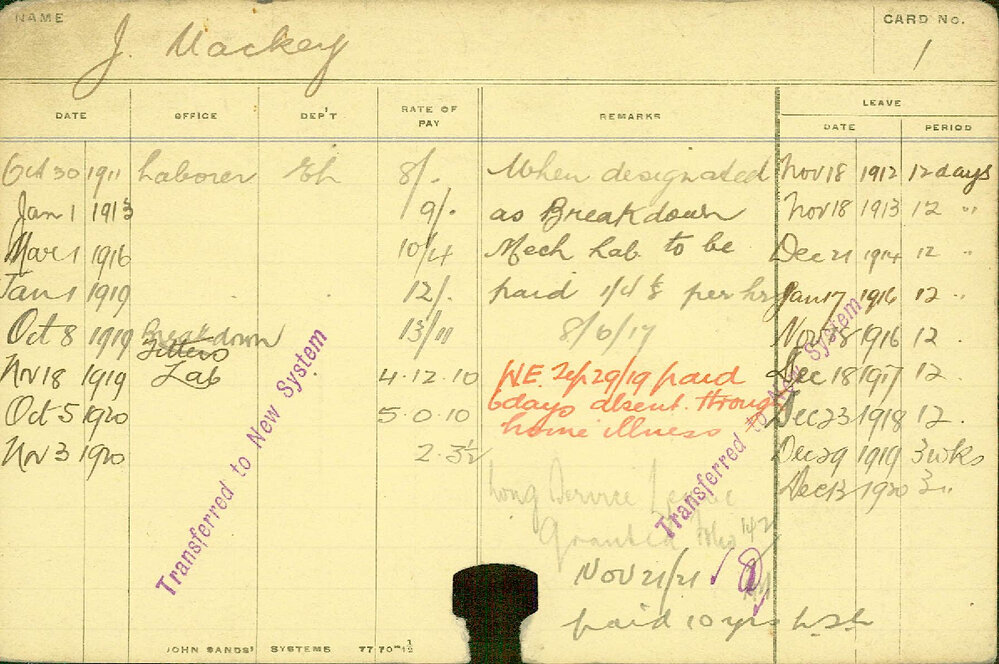 NAME
J. Mackey
CARD No.
1
DATE OFFICE DEP'T RATE OF PAY REMARKS LEAVE
DATE PERIOD
Oct 30 1911 Laborer Eh 8/. When designated Nov 18 1912 12 days
Jan 1 1913 9/. as Breakdown Nov 18 1913 12 "
Mar 1 1916 10/4 Mech Lab. to be Dec 21 1914 12 "
Jan 1 1919 12/. paid 1/4 per hr Jan 17 1916 12 "
Oct 8 1919 Breakdown 13/11 8/6/17 Nov 1916 12 .
Fitters
Nov 18 1919 Lab 4.12.10 W.E. 29/19 paid Dec 18 1917 12 .
Oct 5 1920 5.0.10 6 days absent through Dec 23 1918 12 .
home illness
Nov 3 1920 2.3½ Dec 29 1919 3 wks
Long Service Leave Dec 13 1920 3 "
Granted 142
Nov 21/21
paid 10 yrs
Transferred to New System
Transferred to New System
JOHN SANDS' SYSTEMS 7770